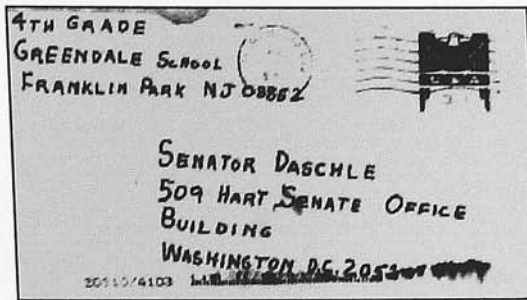 4TH GRADE
GREENDALE SCHOOL
FRANKLIN PARK NJ 08852
SENATOR DASCHLE
509 HART SENATE OFFICE
BUILDING
WASHINGTON D.C. 2051
20510/4103